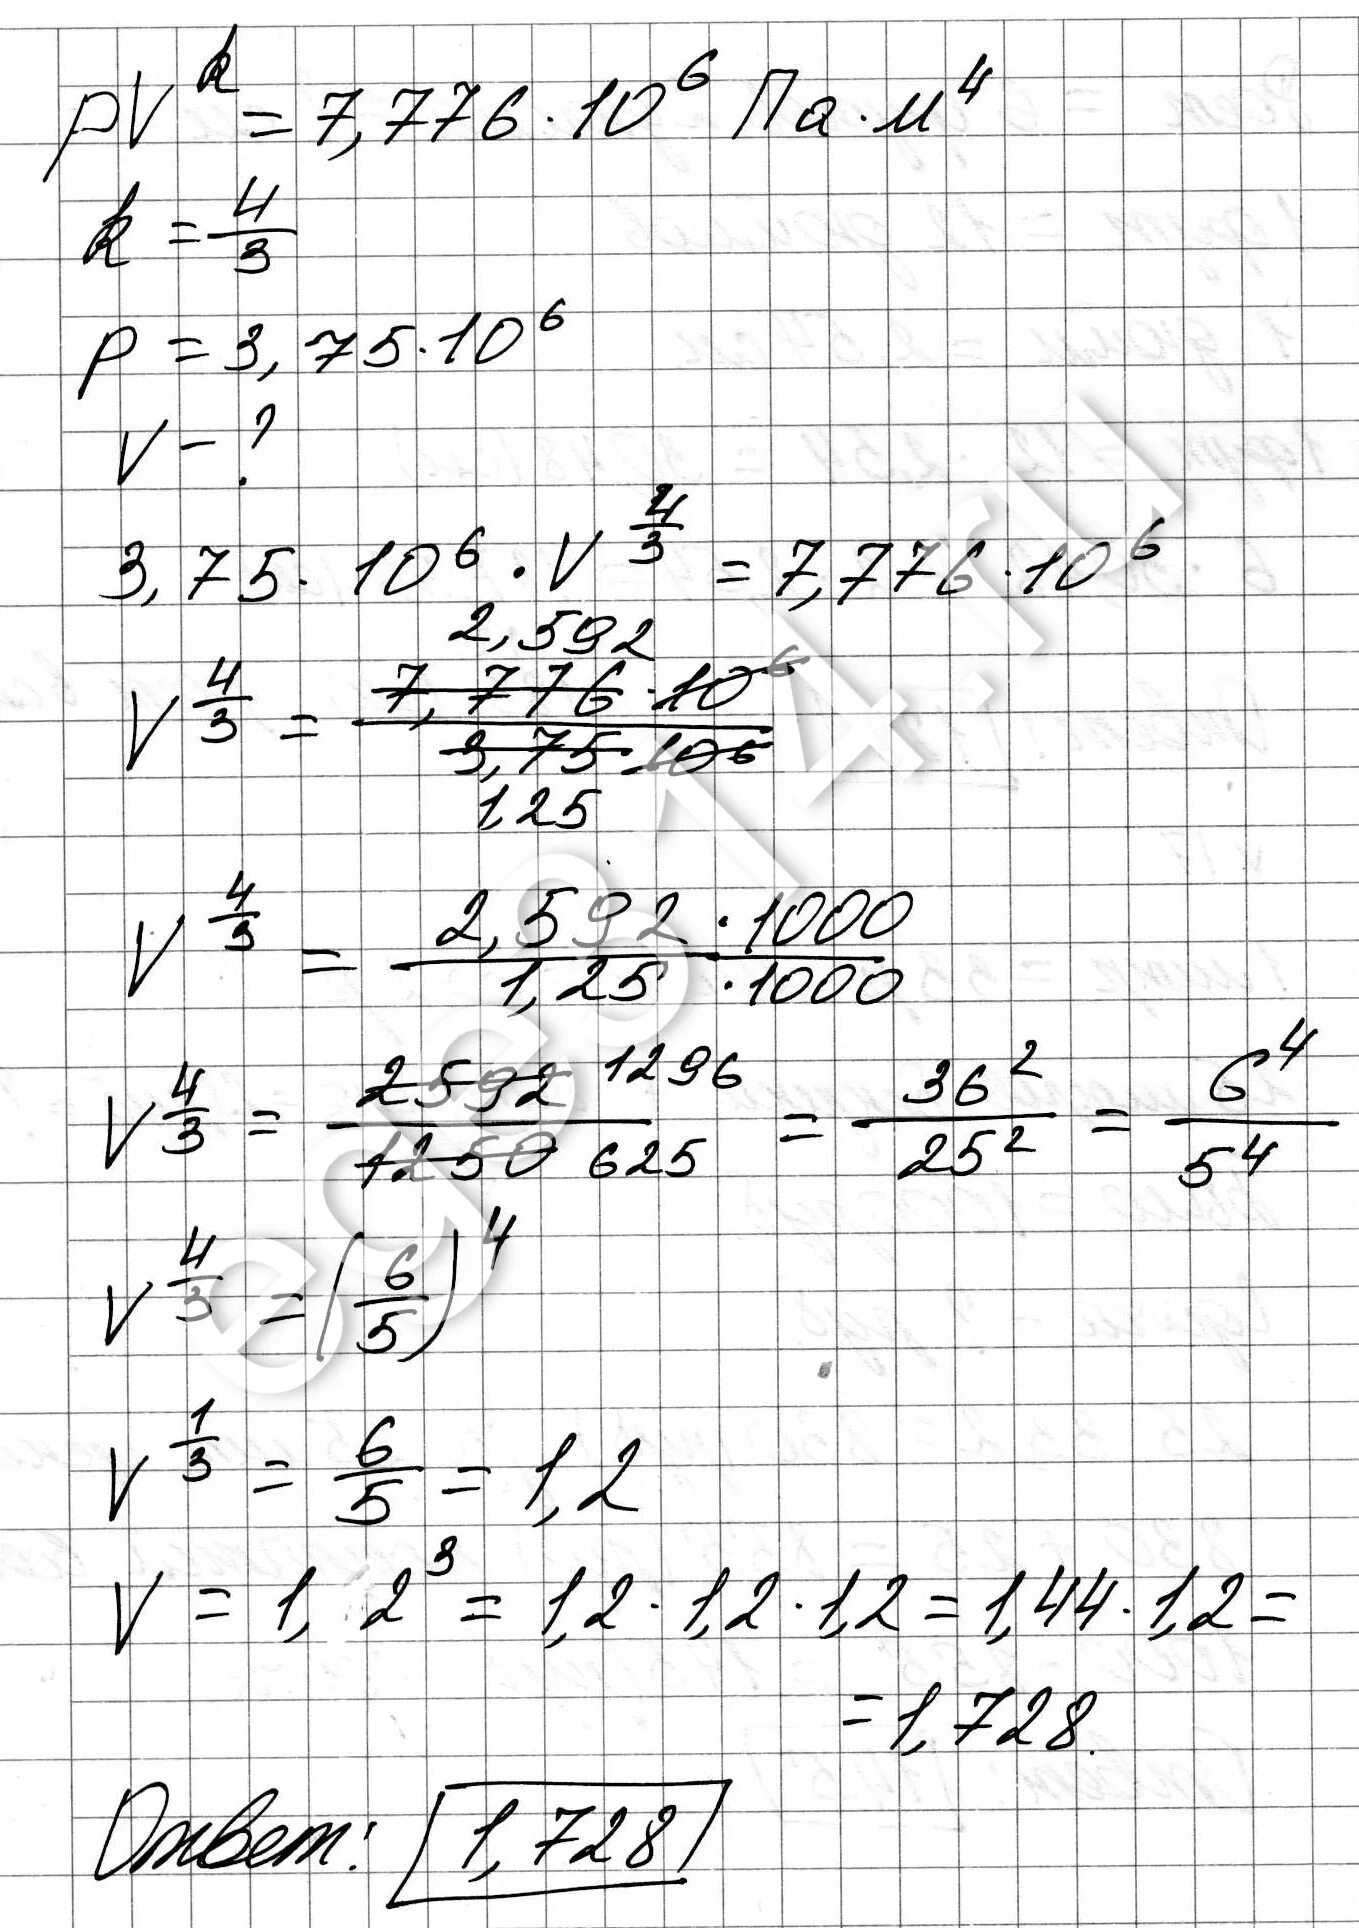 pV^k = 7,776·10^6 Па·м^4
k = 4/3
p = 3,75·10^6
V - ?
3,75·10^6·V^(4/3) = 7,776·10^6
2,592
V^(4/3) = 7,776·10^6 / 3,75·10^6
1,25
V^(4/3) = 2,592·1000 / 1,25·1000
V^(4/3) = 2592 1296 / 1250 625 = 36^2/25^2 = 6^4/5^4
V^(4/3) = (6/5)^4
V^(1/3) = 6/5 = 1,2
V = 1,2^3 = 1,2·1,2·1,2 = 1,44·1,2 =
= 1,728.
Ответ: 1,728
ege314.ru